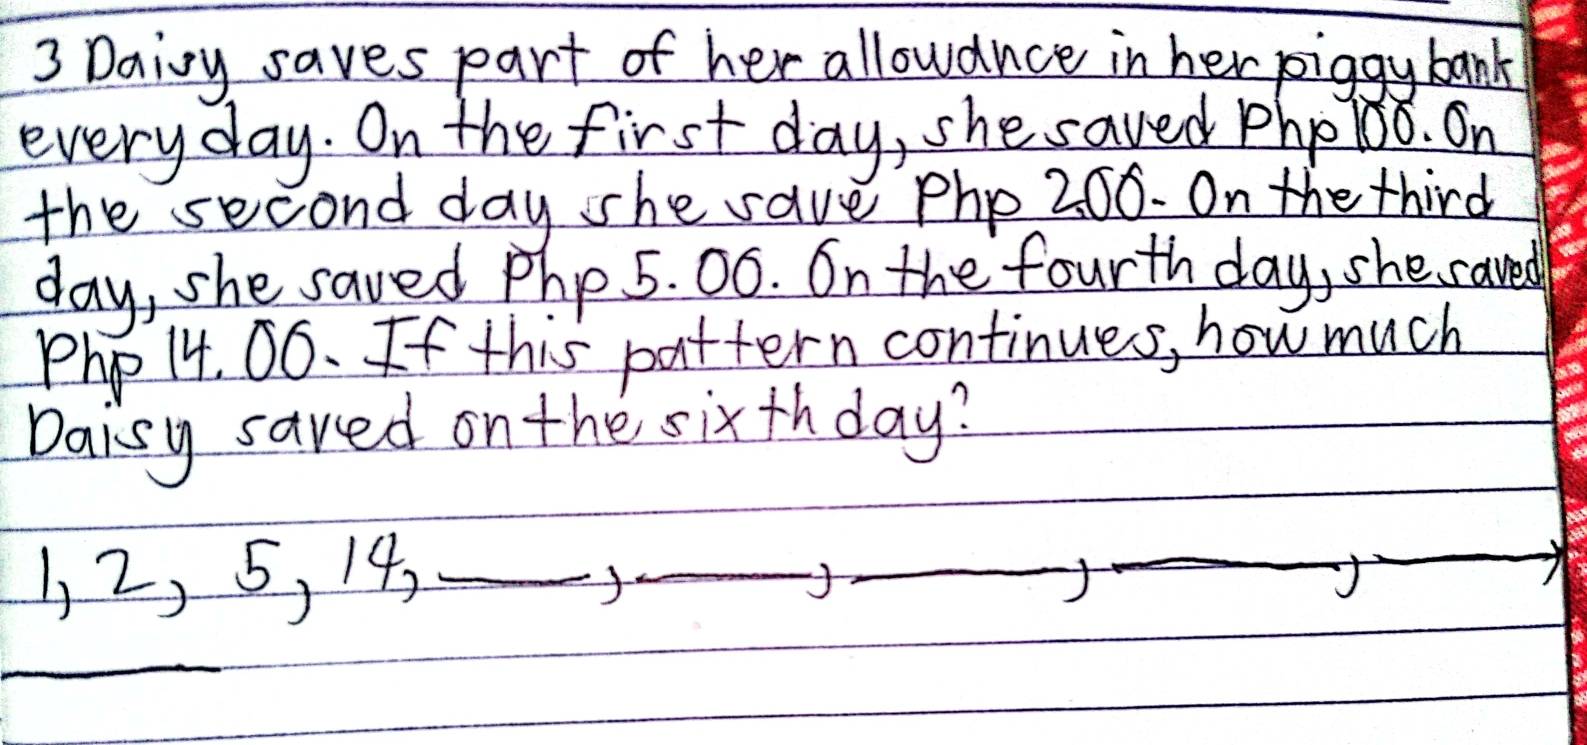 3 Daisy saves part of her allowance in her piggy bank
everyday. On the first day, she saved Php 1.00. On
the second day she save Php 2.00. On the third
day, she saved Php 5.00. On the fourth day, she saved
Php 14.00. If this pattern continues, how much
Daisy saved on the sixth day?
1, 2, 5, 14, ____, ____, ____, ____, ____,
____